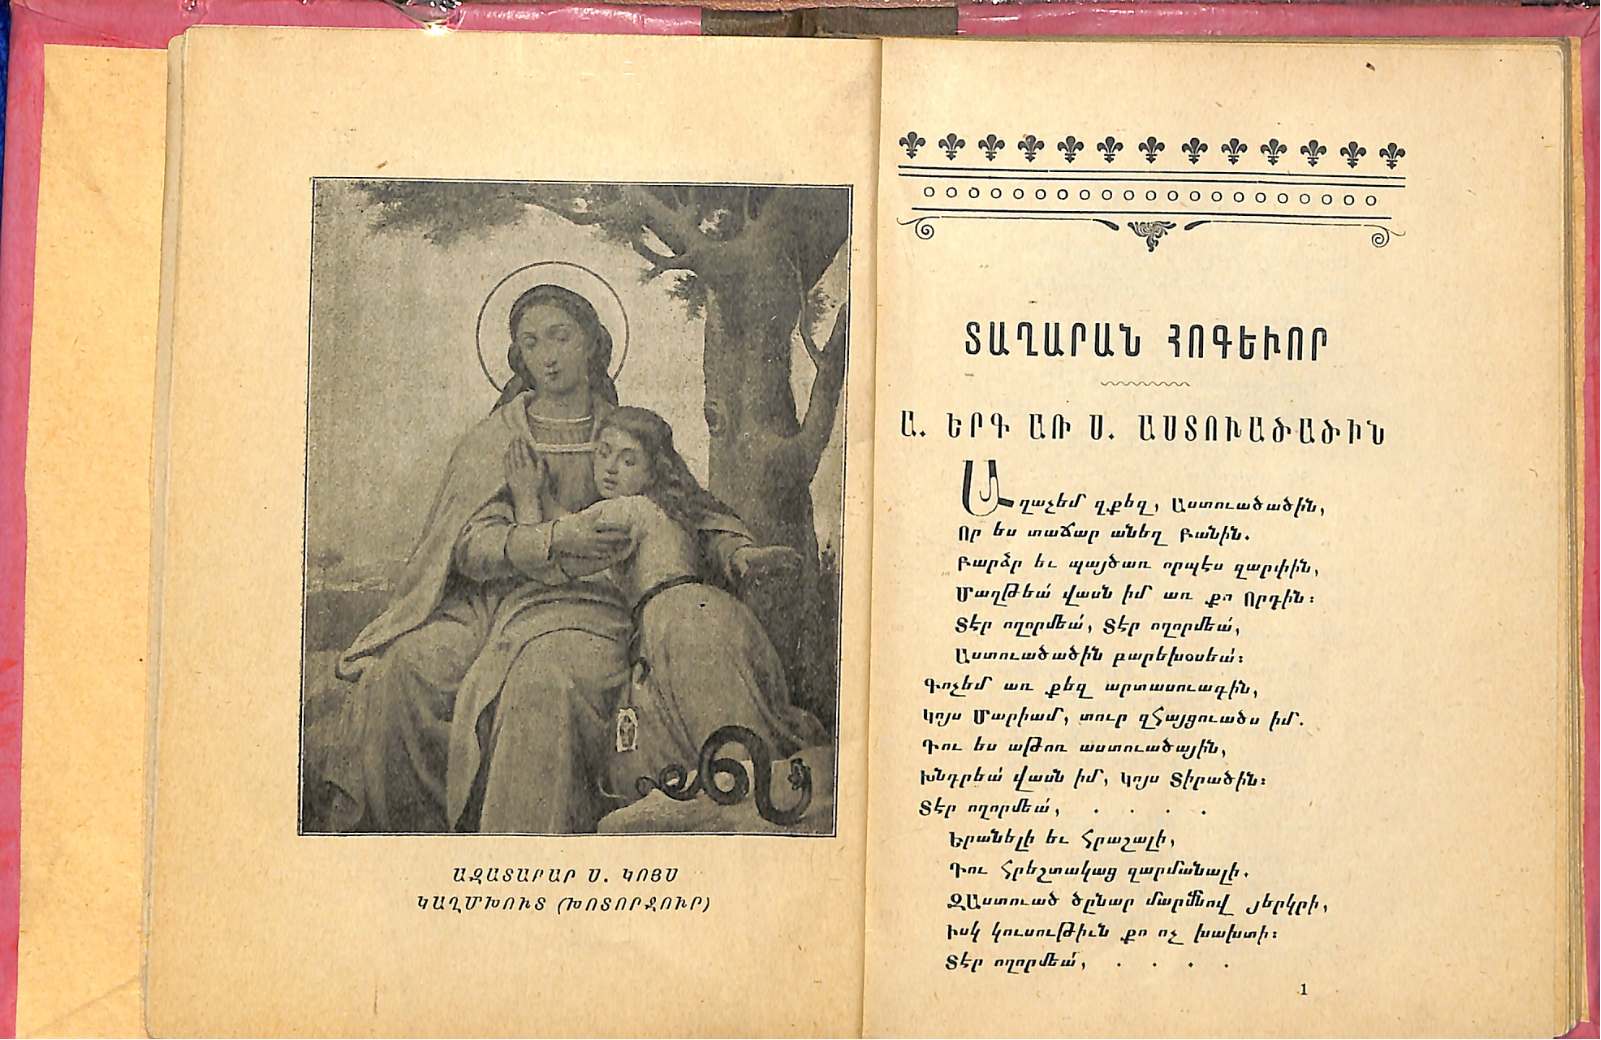 ԱԶԱՏԱՐԱՐ Ս. ԿՈՅՍ
ԿԱՂՄԽՈՒՏ (ԽՈՏՈՐՋՈՒՐ)
ՏԱՂԱՐԱՆ ՀՈԳԵՒՈՐ
Ա. ԵՐԳ ԱՌ Ս. ԱՍՏՈՒԱԾԱԾԻՆ
Աղաչեմ զքեզ, Աստուածածին,
Որ ես տաճար անեղ Բանին.
Բարձր եւ պայծառ որպէս զարփին,
Մաղթեա՛ վասն իմ առ քո Որդին։
Տէր ողորմեա՛, Տէր ողորմեա՛,
Աստուածածին բարեխօսեա՛։
Գոչեմ առ քեզ արտասուագին,
Կոյս Մարիամ, տուր զՀայցուածս իմ.
Դու ես աթոռ աստուածային,
Խնդրեա՛ վասն իմ, Կոյս Տիրածին։
Տէր ողորմեա՛, . . . .
Երանելի եւ Հրաշալի,
Դու Հրեշտակաց զարմանալի.
ԶԱստուած ծընար մարմնով յերկրի,
Իսկ կուսութիւն քո ոչ խախտի։
Տէր ողորմեա՛, . . . .
1